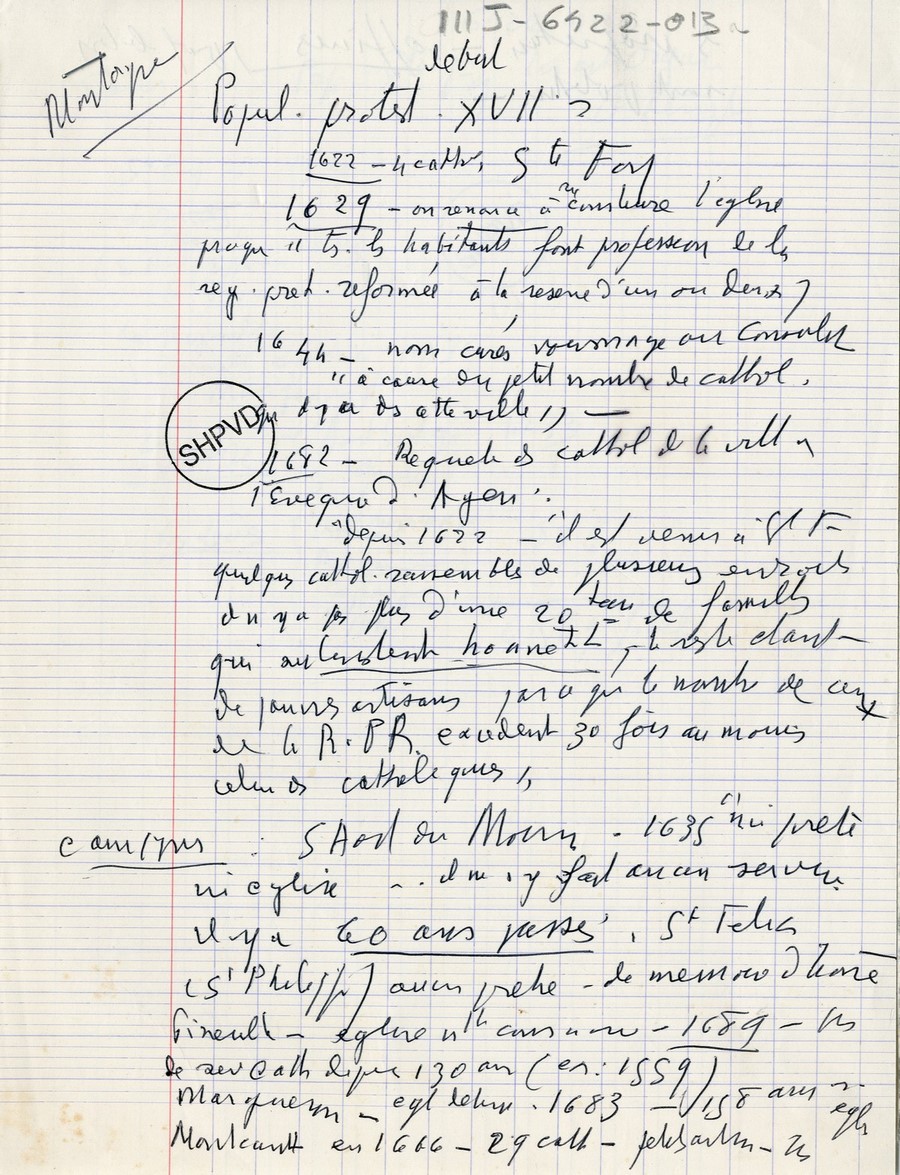 III J - 6422-013
Montaigne
debut
Popul. protest. XVII
1622 - 4 cathol. Ste Foy
1629 - on renonce à construire l'eglise
"ts. ls habitants font profession de la
pret. reformée à la reserve d'un ou deux
1644 - nom curés au Consulat
" à cause du petit nombre de cathol.
qu'il y a ds cette ville "
SHPVD
1682 - Requete ds cathol de la ville
l'Eveque d'Agen :
"depuis 1622 - il est venu à St F
quelques cathol. rassembles de plusieurs endroits
il n y a ps plus d'une 20taine de familles
qui subsistent honnett, le reste etant
de pauvres artisans parce que le nombre de ceux
de la R.P.R. excedent 30 fois au moins
celui ds catholiques "
: St Avit du Moiron - 1635 "ni prete
ni eglise ... il ne s'y fait aucun service
il y a 60 ans passés. St Felix
(St Philippe) aucun pretre - de memoire d'homme
Pineuilh - eglise - 1689 -
de serv Cath depuis 130 ans (en : 1559)
Margueron - egl detruite. 1683 - 158 ans
egls
Montcaut en 1666 - 29 cath -